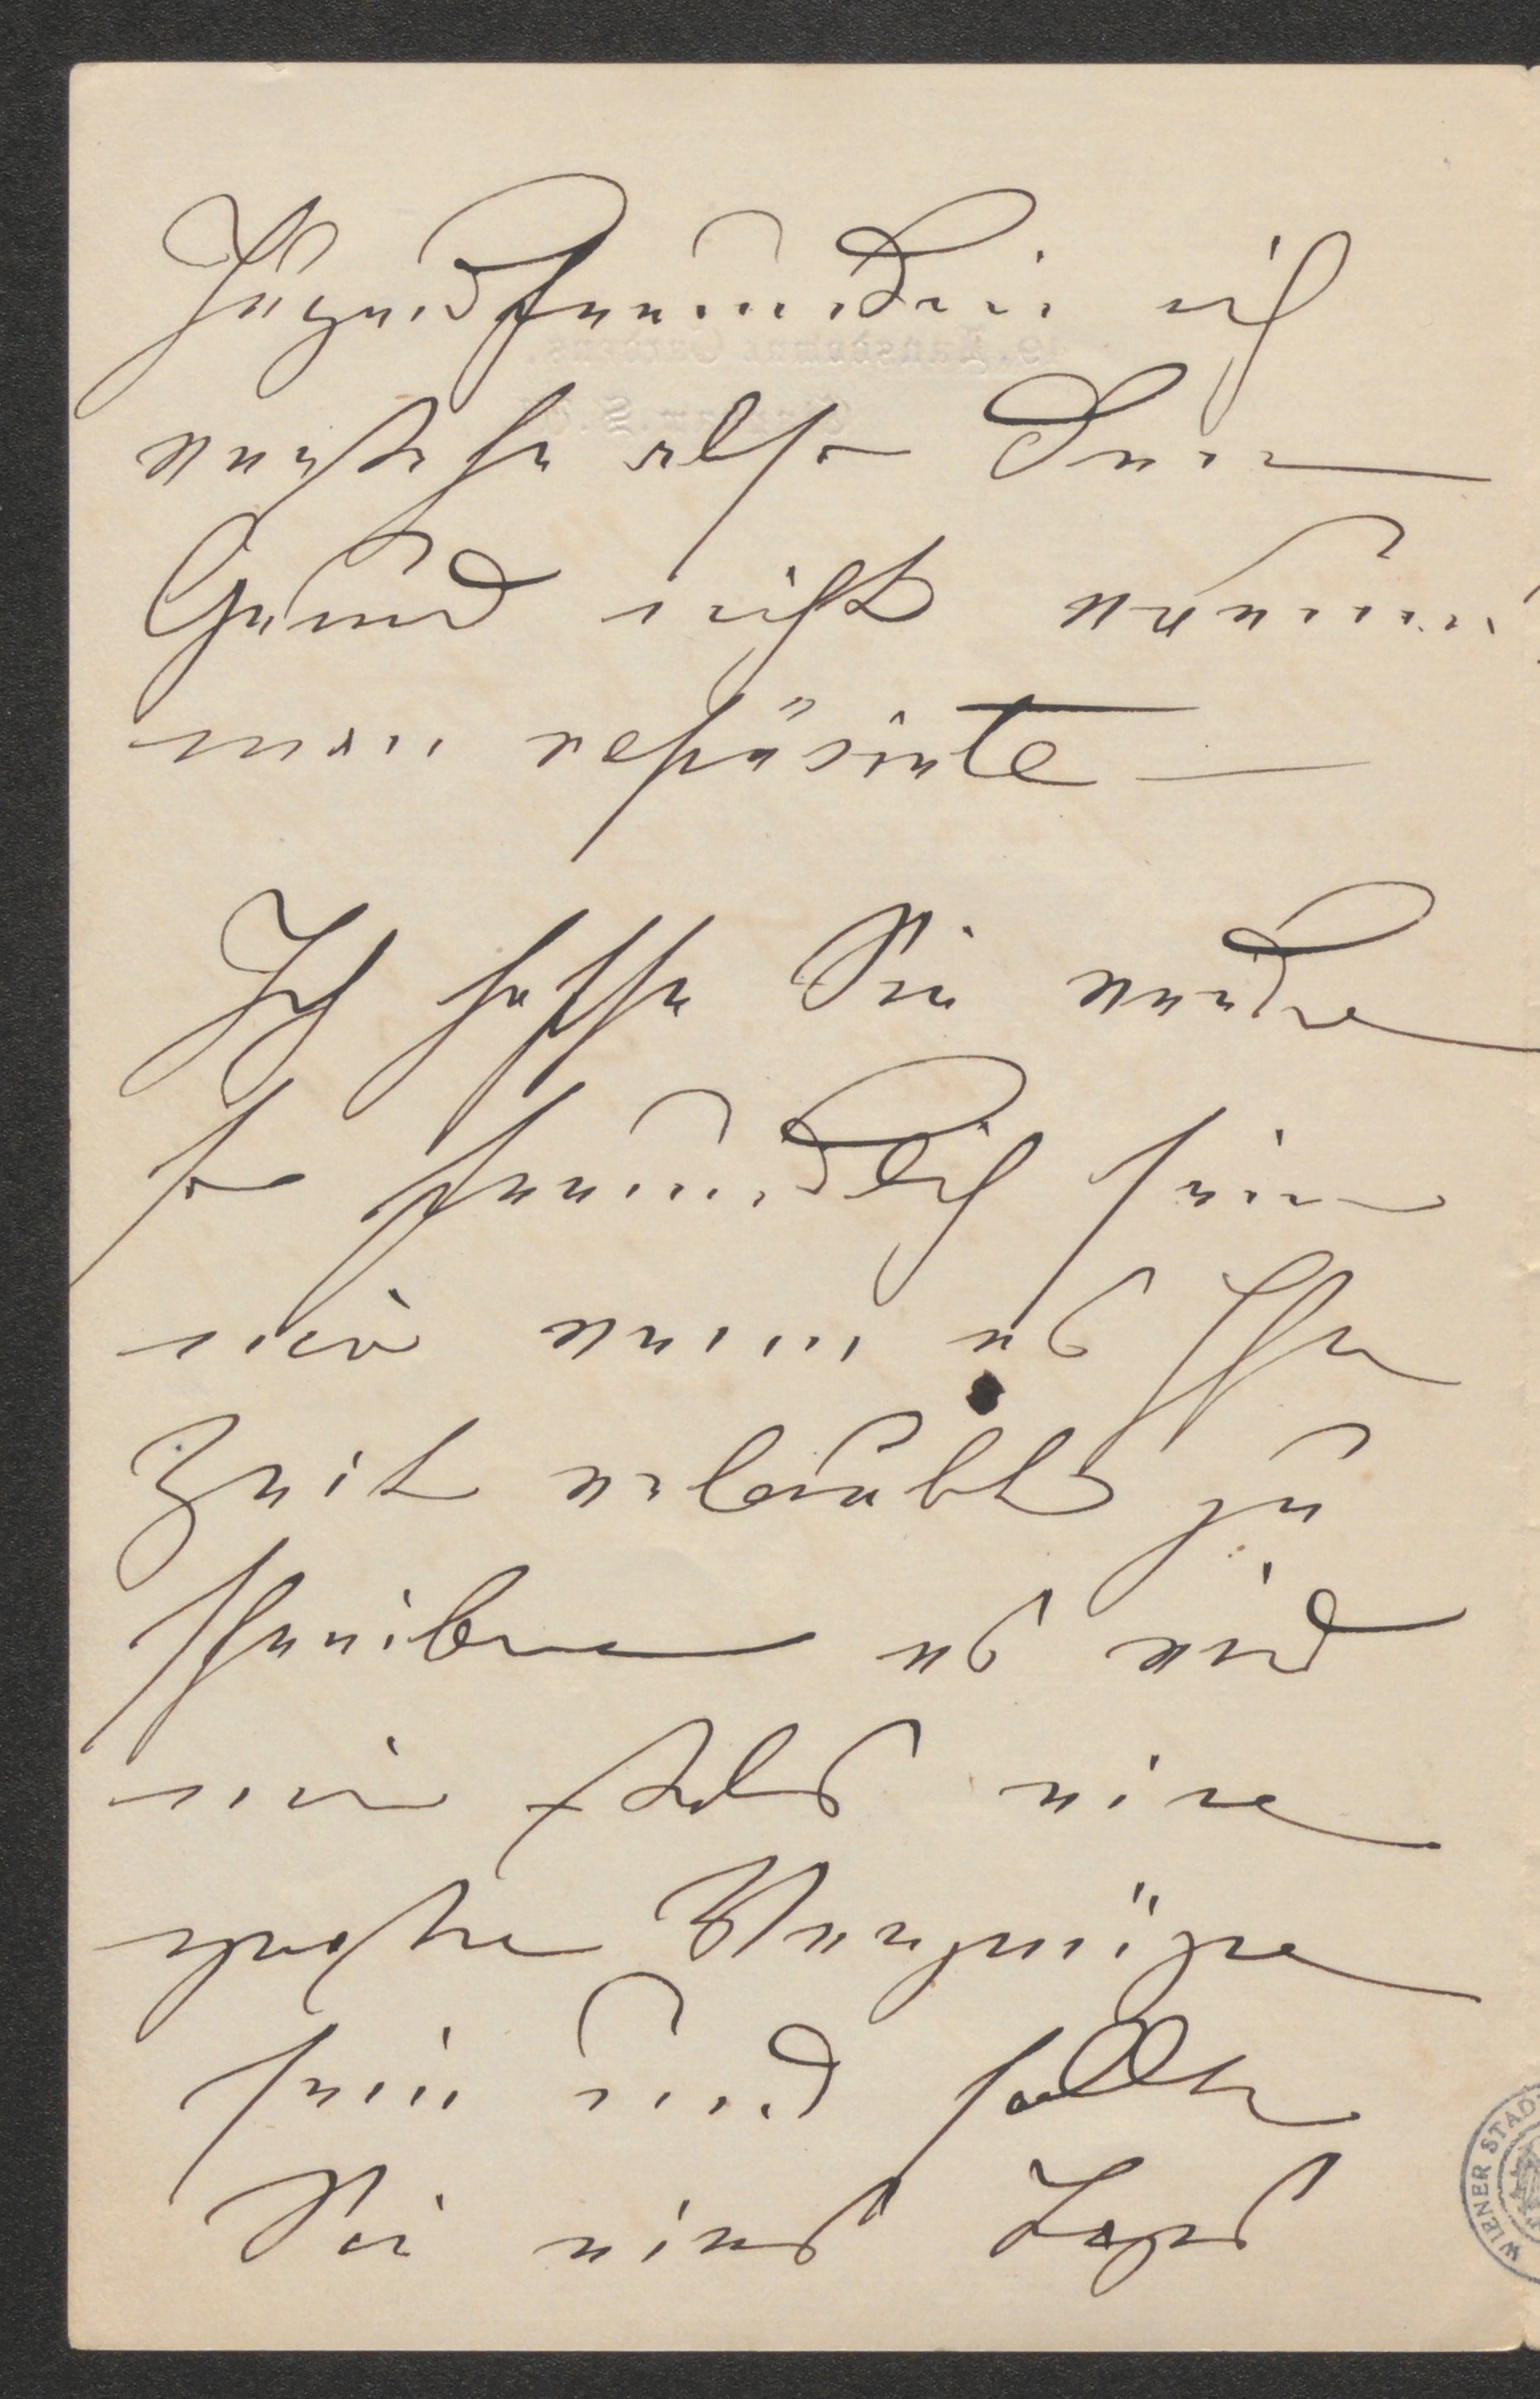 Jugendfreundin ich
verstehe also den
Grund nicht warum
man refüsirte —
Ich hoffe Sie werden
so freundlich sein
mir wenn es Ihre
Zeit erlaubt zu
schreiben es wird
mir stets eine
große Vergnügen
sein und sollten
Sie eines Tages
WIENER STAD